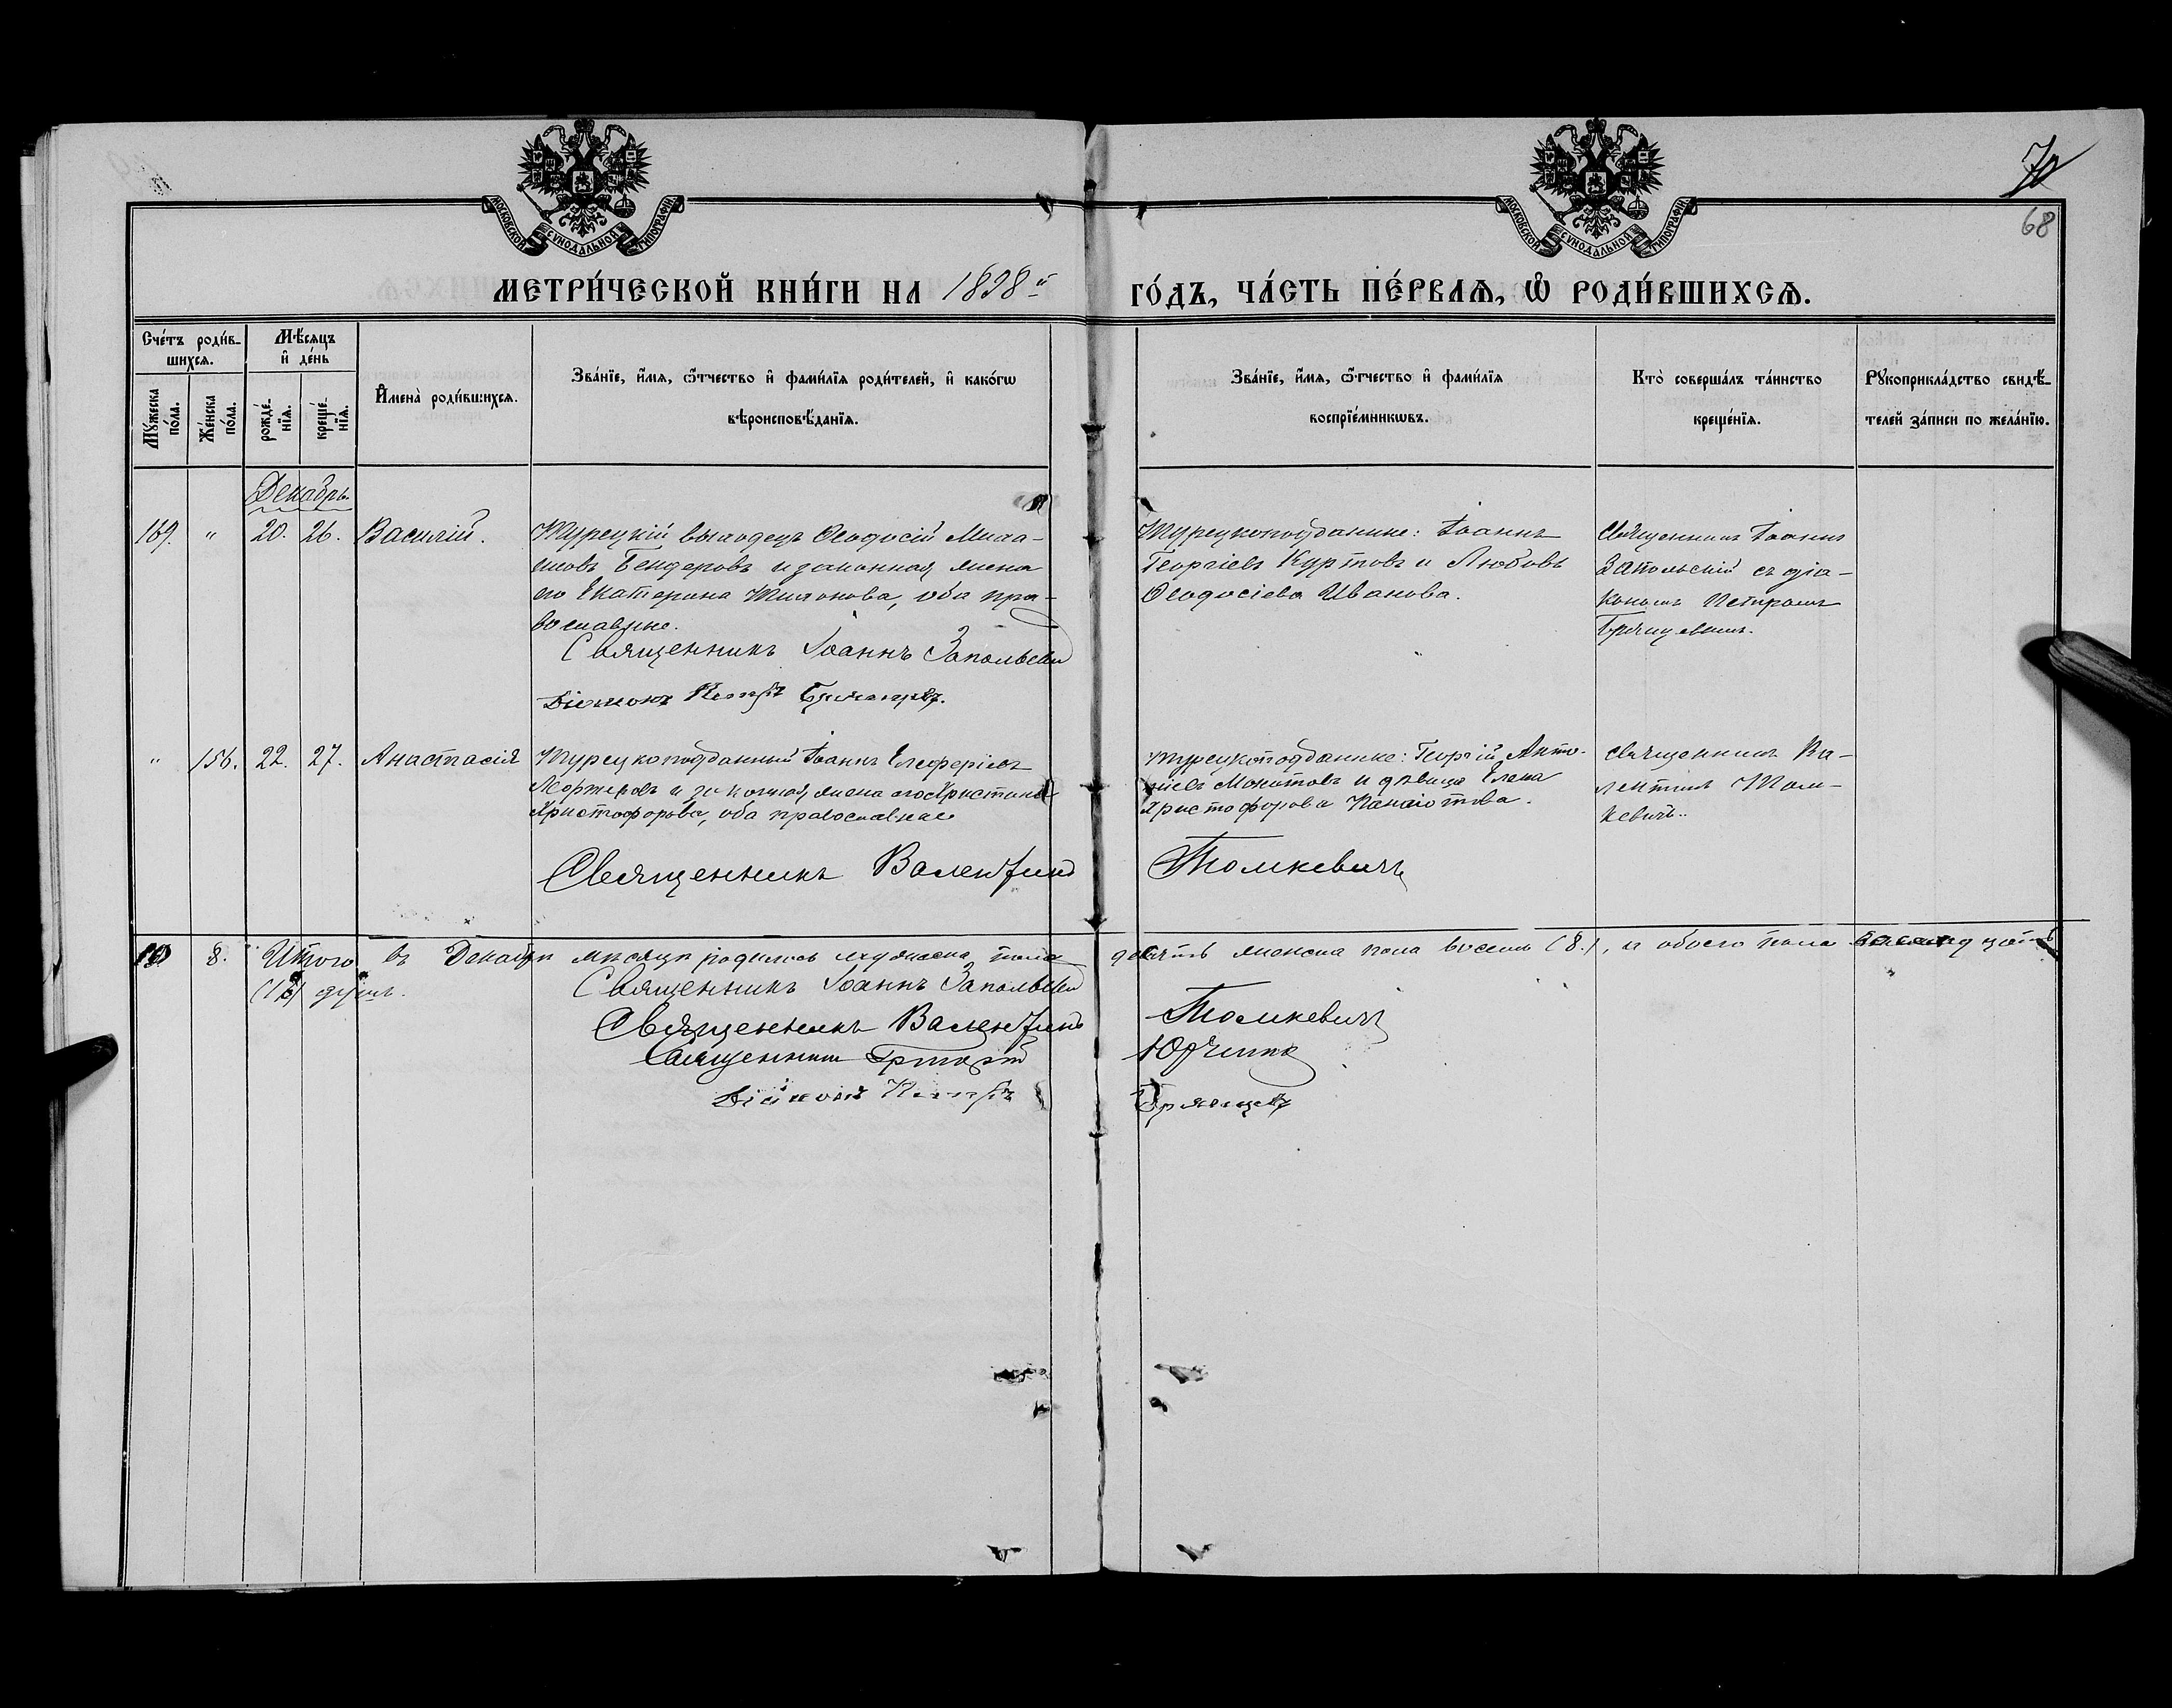 70
68
МОСКОВСКОЙ СУНОДАЛЬНОЙ ТИПОГРАФІИ
МОСКОВСКОЙ СУНОДАЛЬНОЙ ТИПОГРАФІИ
МЕТРИ́ЧЕСКОЙ КНИ́ГИ НА 1898й ГО́ДЪ, ЧА́СТЬ ПЕ́РВАѦ, Ѡ҆ РОДИ́ВШИХСѦ.
Сче́тъ роди́в-
шихсѧ.
Мѣ́сѧцъ
и҆ де́нь
Мꙋ́жеска по́ла.
Же́нска по́ла.
рожде́-
нїѧ.
креще́-
нїѧ.
И҆мена̀ роди́вшихсѧ.
Зва́нїе, и҆́мѧ, ѻ҆́тчество и҆ фами́лїѧ роди́телей, и҆ како́гѡ
вѣроисповѣ́данїѧ.
Зва́нїе, и҆́мѧ, ѻ҆́тчество и҆ фами́лїѧ
воспрїе́мникѡвъ.
Кто̀ соверша́лъ та́инство
креще́нїѧ.
Рꙋкоприкла́дство свидѣ́-
телей за́писи по жела́нїю.
Декабрь
169. " 20. 26. Василій.
Турецкій выходецъ Ѳеодосій
Бендеровъ и законная жена
его Екатерина, оба пра-
вославные.
Священникъ Іоаннъ Запольскій
Діаконъ Петръ
Турецкоподданные: Іоаннъ
Георгіевъ Куртовъ и Любовь
Ѳеодосіева Иванова.
Священникъ Іоаннъ
Запольскій съ діа-
кономъ Петромъ
" 156. 22. 27. Анастасія
Турецкоподданный Іоаннъ Елеферіевъ
и законная жена его Христина
Христофорова, оба православные
Священникъ Валентинъ Томкевичъ
турецкоподданные: Георгій Анто-
ніевъ и дѣвица Елена
Христофорова Панаіотова.
Священникъ Ва-
лентинъ Том-
кевичъ.
8. Итого въ Декабрѣ мѣсяцѣ родилось мужеска пола девять женска пола восемь (8.), и обоего пола
душъ.
Священникъ Іоаннъ Запольскій
Священникъ Валентинъ Томкевичъ
Священникъ Григорій
Діаконъ Петръ